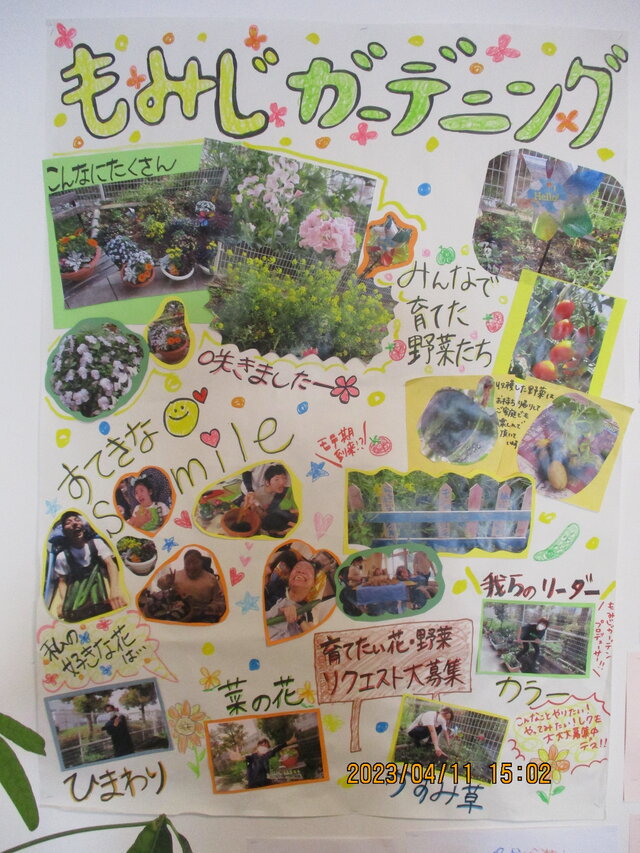 もみじガーデニング
こんなにたくさん
咲きましたー
みんなで
育てた
野菜たち
収穫した野菜は
お持ち帰りして
ご家庭でも
楽しんで
頂いて
います
すてきな
smile
我らのリーダー
もみじガーデン
プロデューサー!!
私の
好きな花
は…
育てたい花・野菜
リクエスト大募集
カラー
こんなことやりたい!
やってみたい!レクを
大大大募集中
デス!!
菜の花
ひまわり
うすみ草
2023/04/11 15:02